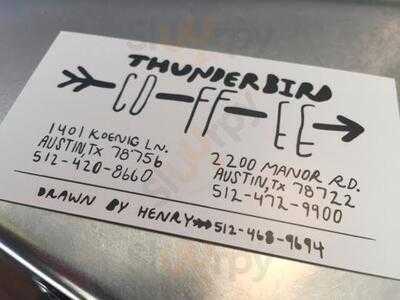 THUNDERBIRD
CO-FF-EE
1401 KOENIG LN.
AUSTIN, TX 78756
512-420-8660
2200 MANOR RD.
AUSTIN, TX 78722
512-472-9900
DRAWN BY HENRY 512-468-9694